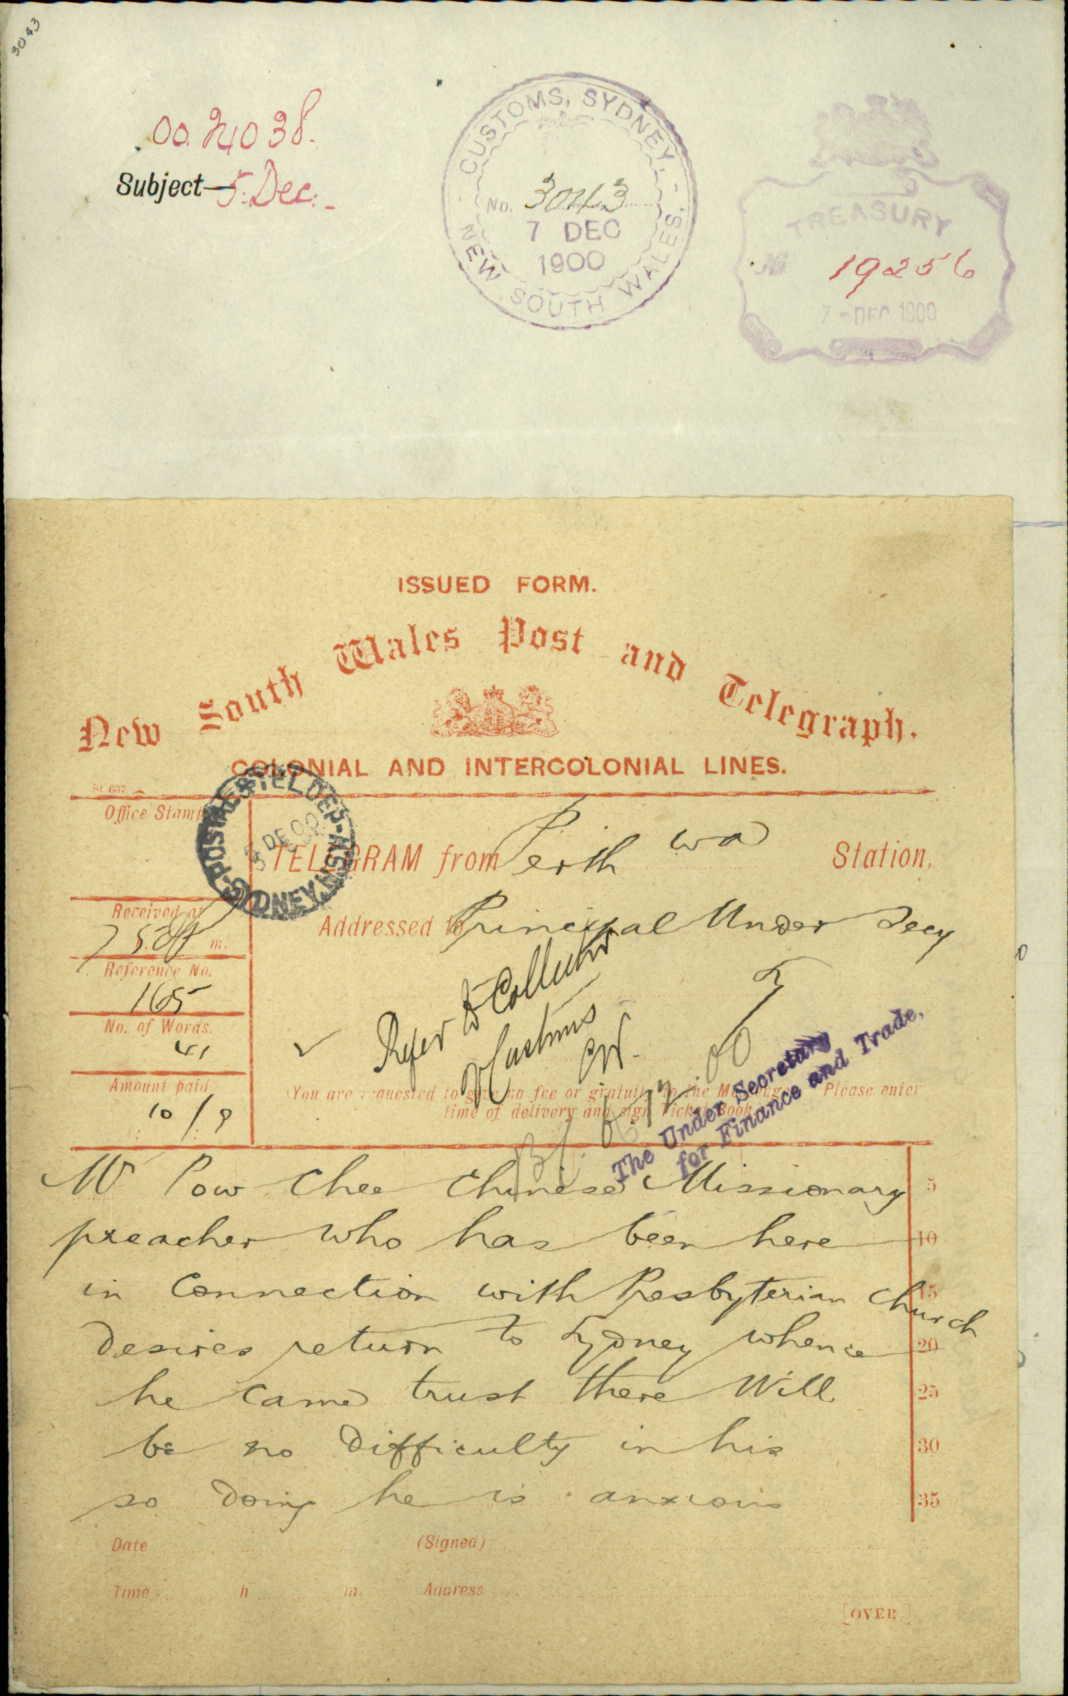 3043
00.24038.
Subject— 5. Dec.
CUSTOMS, SYDNEY,
No. 3043
7 DEC
1900
NEW SOUTH WALES.
TREASURY
No 19256
7 - DEC 1900
ISSUED FORM.
New South Wales Post and Telegraph.
COLONIAL AND INTERCOLONIAL LINES.
Office Stamp
5 DE 00
SYDNEY. N.S.W.
TELEGRAM from Perth wa Station.
Received at
m.
Addressed to Principal Under Secy
Reference No.
165
No. of Words.
41
Amount paid
10/9
Refer to Collector
of Customs
The Under Secretary
for Finance and Trade,
You are requested to give no fee or gratuity to the Messenger. Please enter
time of delivery and sign Ticket Book
Mr Pow Chee Chinese Missionary 5
preacher who has been here 10
in Connection with Presbyterian Church 15
desires return to Sydney whence 20
he came trust there Will 25
be no difficulty in his 30
so doing he is anxious 35
Date (Signed)
Time h m. Address
[OVER]